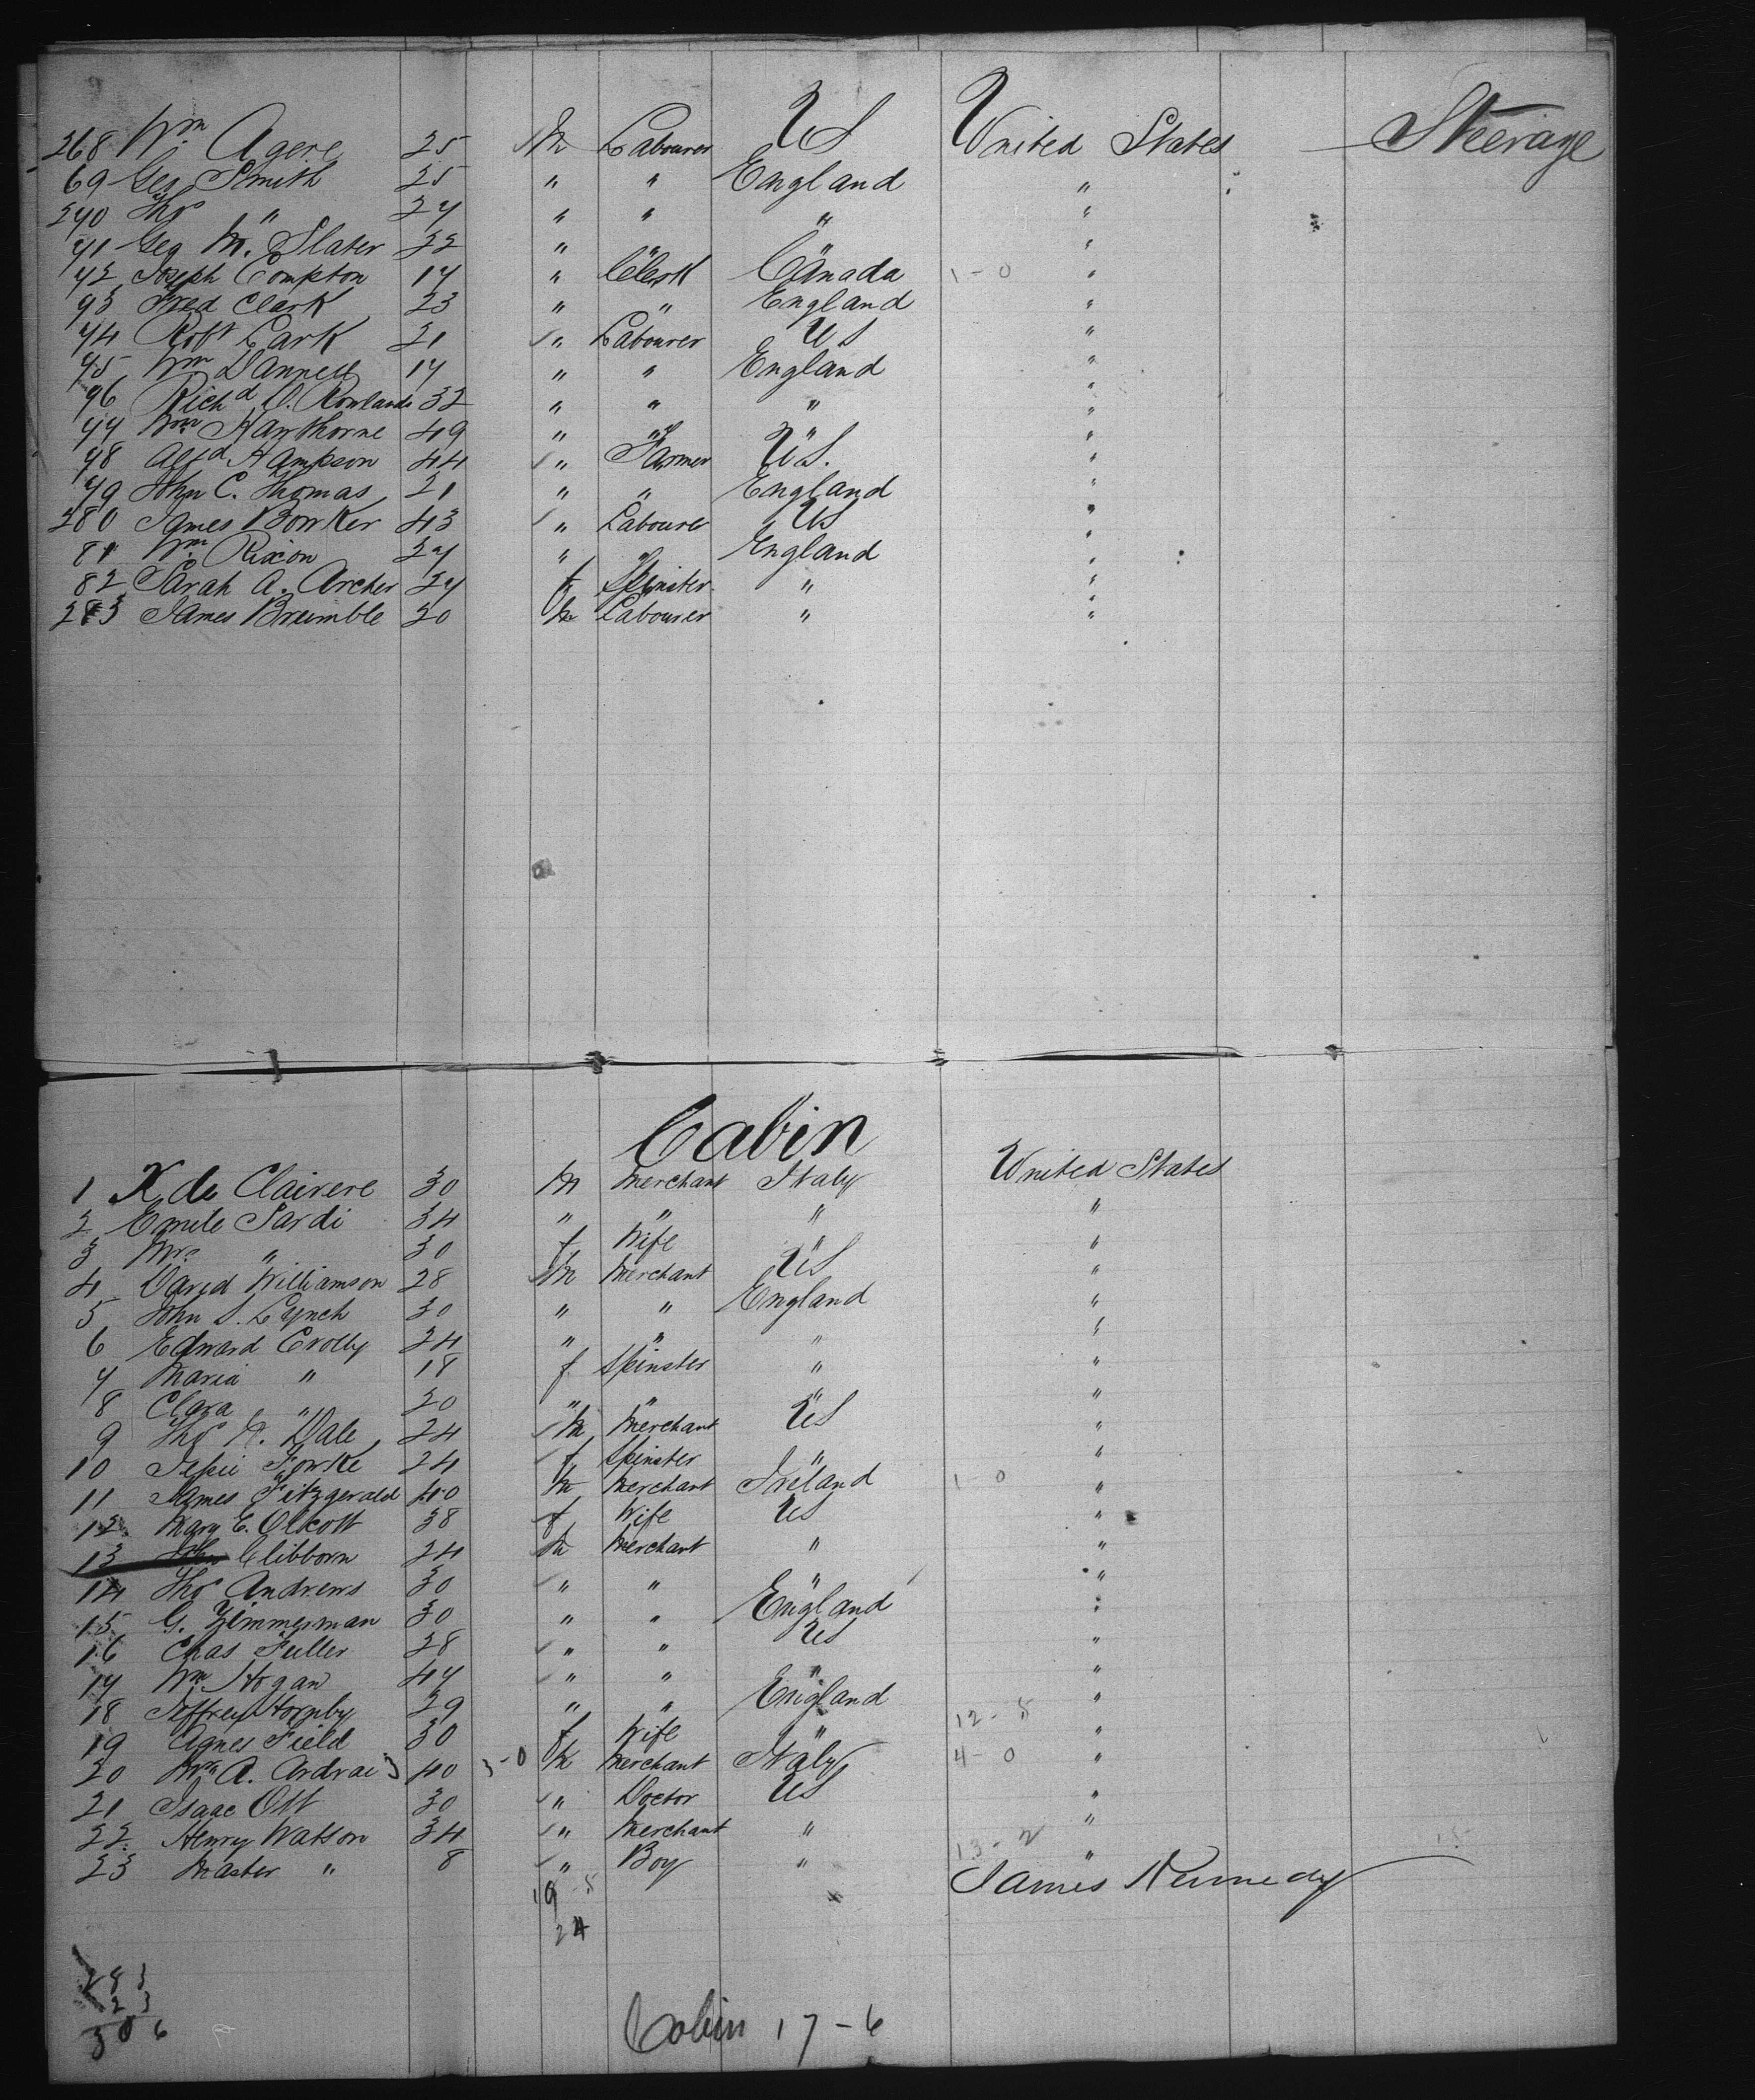 268 Wm Agere 25 m Labourer US United States Steerage
69 Geo Smith 25 " " England "
270 Thos " 27 " " " "
71 Geo M. Slater 22 " " " "
72 Joseph Compton 17 " Clerk Canada 1-0 "
73 Fred Clark 23 " " England "
74 Robt Cark 21 " Labourer US "
75 Wm Dannell 17 " " England "
76 Richd O. Rowlands 32 " " " "
77 Wm Hawthorne 49 " " " "
78 Alfd Hampson 44 " Farmer US. "
79 John C. Thomas 21 " " England "
280 James Bowker 43 " Labourer US "
81 Wm Rixon 27 " " England "
82 Sarah A. Archer 27 f Spinster " "
283 James Brumble 20 m Labourer " "
Cabin
1 K de Clairere 30 m Merchant Italy United States
2 Emile Sardi 34 " " " "
3 Mrs " 30 f Wife " "
4 David Williamson 28 m Merchant US "
5 John S. Lynch 30 " " England "
6 Edward Crolly 24 " " " "
7 Maria " 18 f Spinster " "
8 Clara " 20 " " " "
9 Thos Dale 24 m Merchant US "
10 Jessie Fowke 24 f Spinster " "
11 James Fitzgerald 40 m Merchant Ireland 1-0 "
12 Mary E. Olcott 38 f Wife US "
13 John Clibborn 24 m Merchant " "
14 Thos Andrews 30 " " " "
15 G. Zimmerman 30 " " England "
16 Chas Fuller 28 " " US "
17 Wm Hogan 47 " " " "
18 Jeffrey Hornby 29 " " England "
12-8
19 Agnes Field 30 f Wife " "
20 A. Ardrai 40 3-0 m Merchant Italy 4-0 "
21 Isaac Ott 30 " Doctor US "
22 Henry Watson 34 " Merchant " "
23 Master " 8 " Boy " 13-2 "
19-5 James Kennedy
24
283
23
306
Cabin 17-6